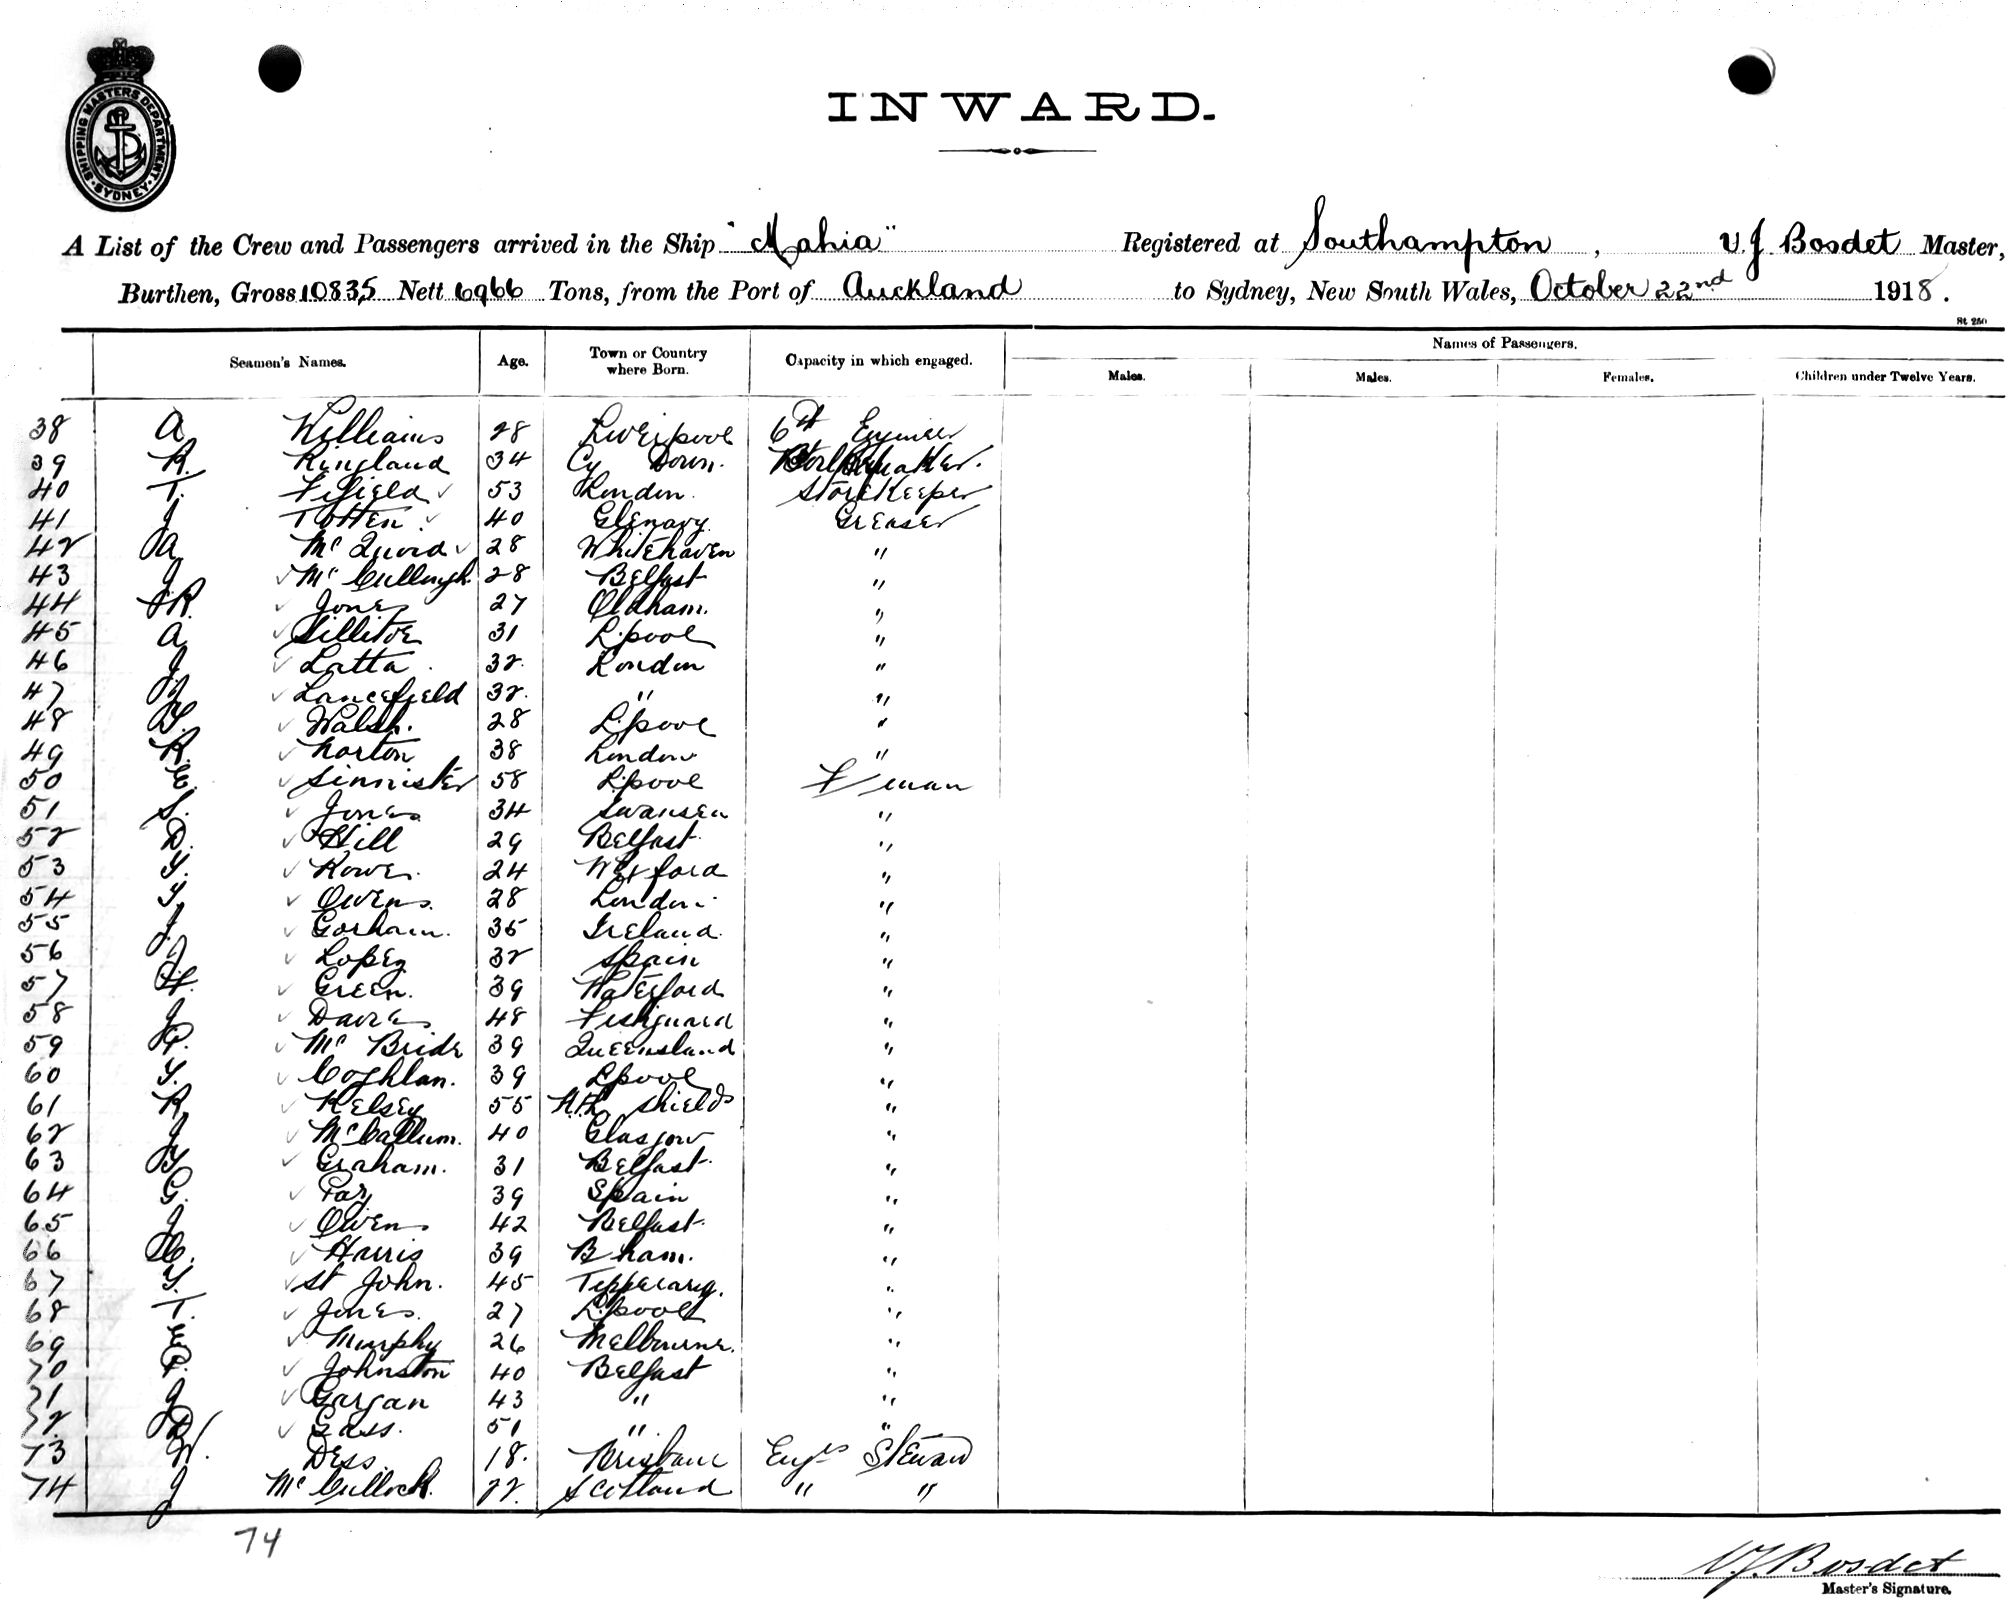 SHIPPING MASTERS DEPARTMENT. SYDNEY
INWARD.
A List of the Crew and Passengers arrived in the Ship "Mahia" Registered at Southampton, V.J. Bosdet Master,
Burthen, Gross 10835 Nett 6966 Tons, from the Port of Auckland to Sydney, New South Wales, October 22nd 1918.
St 250
Seamen's Names. Age. Town or Country where Born. Capacity in which engaged. Names of Passengers.
Males. Males. Females. Children under Twelve Years.
38 A Williams 28 Liverpool 6th Engineer
39 R. Ringland 34 Cy Down.
40 T. Fifield 53 London. Storekeeper
41 J Totten. 40 Glenavy. Greaser
42 A Mc Quoid 28 Whitehaven "
43 J Mc Cullough. 28 Belfast "
44 J.R. Jones 27 Oldham. "
45 A Sillitoe 31 L.pool "
46 J Latta. 32. London "
47 J Lancefield 32. " "
48 Walsh. 28 L.pool "
49 R. Norton 38 London "
50 E. Sinnister 58 L.pool F/eman
51 S. Jones 34 Swansea "
52 D. Hill 29 Belfast "
53 Y. Rowe. 24 Wexford "
54 Y. Owens. 28 London "
55 J. Gorham. 35 Ireland. "
56 J Lopez 32 Spain "
57 H. Green. 39 Waterford "
58 J Davies 48 Fishguard "
59 P. Mc Bride 39 Queensland "
60 Y. Coghlan. 39 Lpool "
61 R. Kelsey 55 Nth Shields "
62 J McCallum. 40 Glasgow "
63 Graham. 31 Belfast "
64 G. Paz 39 Spain "
65 J Owens 42 Belfast "
66 Harris 39 B ham. "
67 Y. St John. 45 Tipperary. "
68 T. Jones. 27 L.pool "
69 E. Murphy 26 Melbourne. "
70 P. Johnston 40 Belfast "
71 J Gargan 43 " "
72. Gass. 51 " "
73 W. Dess. 18. Brisbane Engrs Steward
74 J Mc Cullock. 22. Scotland " "
74
V.J. Bosdet
Master's Signature.